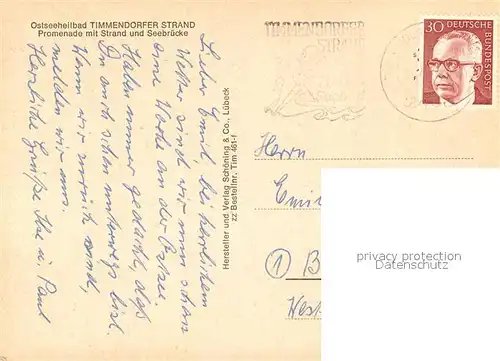 Ostseeheilbad TIMMENDORFER STRAND
Promenade mit Strand und Seebrücke
Lieber Emil bei herrlichem
Wetter sind wir nun schon
eine Woche an der Ostsee.
Haben immer gedacht, daß
Du auch schon unterwegs bist.
Wenn wir zurück sind,
melden wir uns.
Herzliche Grüße Ilse u. Paul
Hersteller und Verlag Schöning & Co., Lübeck
zz Bestellnr. Tim 461-f
TIMMENDORFER
STRAND
30
DEUTSCHE
BUNDESPOST
Herrn
Emil
1 B
West
privacy protection
Datenschutz